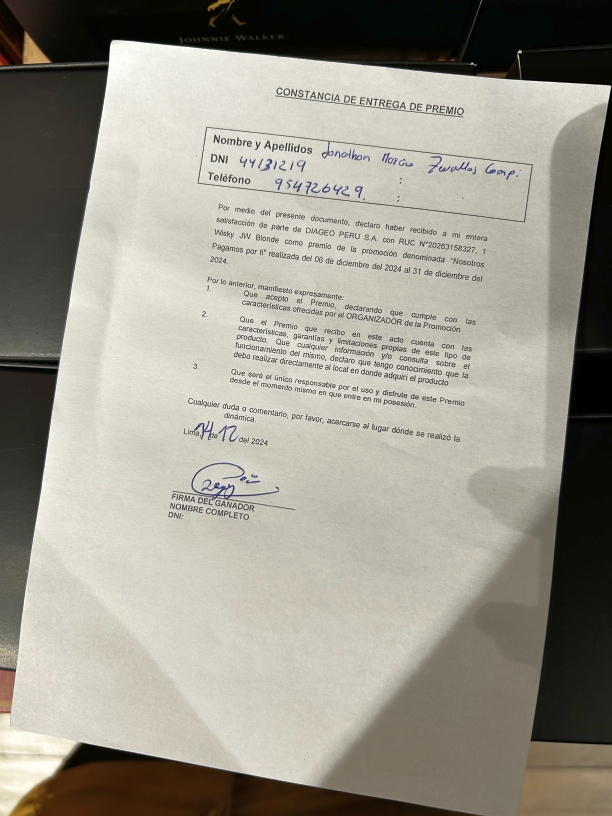 JOHNNIE WALKER
CONSTANCIA DE ENTREGA DE PREMIO
Nombre y Apellidos Jonathan
DNI 44131219 :
Teléfono 954726429. :
Por medio del presente documento, declaro haber recibido a mi entera
satisfacción de parte de DIAGEO PERU S.A. con RUC N°20263158327, 1
Wisky JW Blonde como premio de la promoción denominada "Nosotros
Pagamos por ti" realizada del 06 de diciembre del 2024 al 31 de diciembre del
2024.
Por lo anterior, manifiesto expresamente:
1. Que acepto el Premio, declarando que cumple con las
características ofrecidas por el ORGANIZADOR de la Promoción
2. Que el Premio que recibo en este acto cuenta con las
características, garantías y limitaciones propias de este tipo de
producto. Que cualquier información y/o consulta sobre el
funcionamiento del mismo, declaro que tengo conocimiento que la
debo realizar directamente al local en donde adquirí el producto
3. Que seré el único responsable por el uso y disfrute de este Premio
desde el momento mismo en que entre en mi posesión.
Cualquier duda o comentario, por favor, acercarse al lugar dónde se realizó la
dinámica.
Lima, 14 de 12 del 2024
FIRMA DEL GANADOR
NOMBRE COMPLETO
DNI: